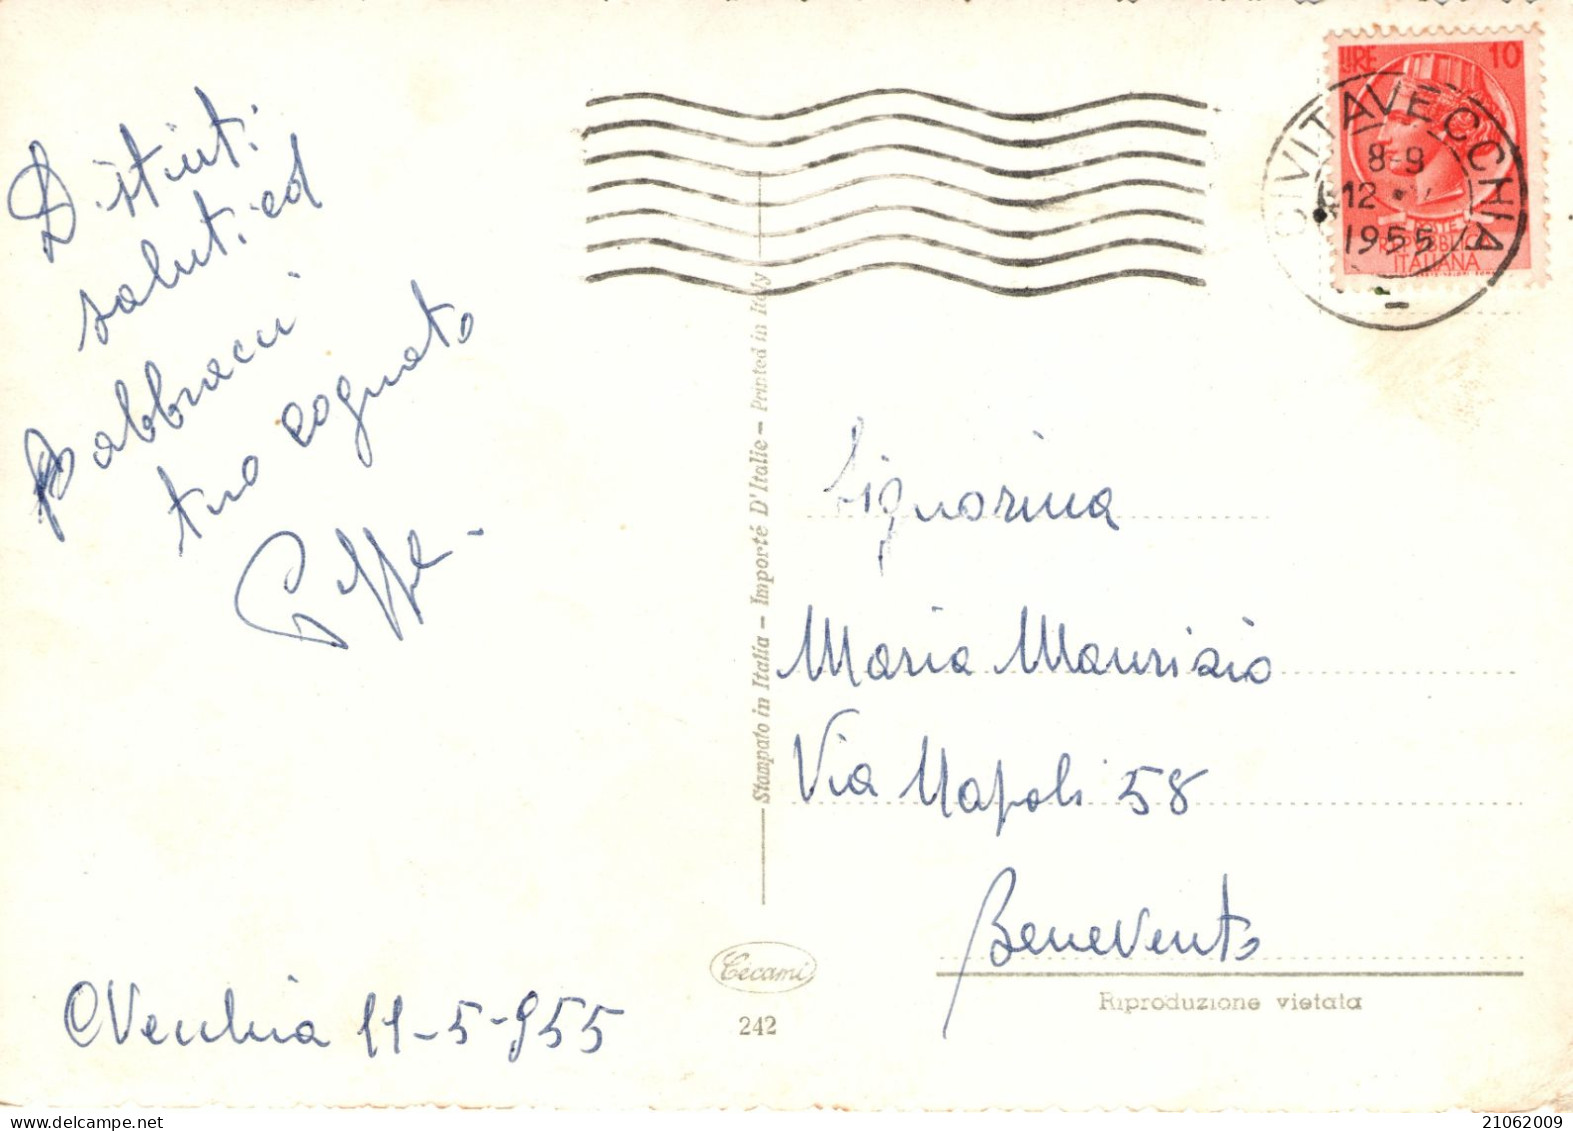 Distinti
saluti ed
abbracci
tuo cognato
Peppe -
CVecchia 11-5-955
LIRE 10
CIVITAVECCHIA
8-9
12
1955
POSTE
REPUBBLICA
ITALIANA
Stampato in Italia - Importé D'Italie - Printed in Italy
Signorina
Maria Maurizio
Via Napoli 58
Benevento
Riproduzione vietata
Cecami
242
21062009